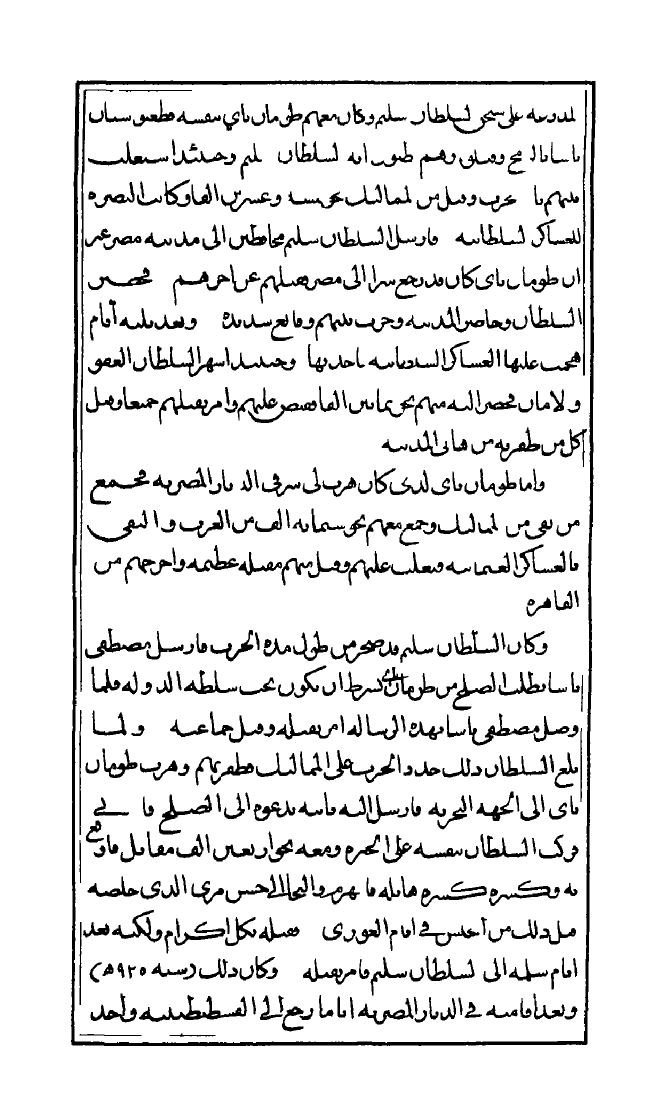 لمدرعه على سحى لسلطان سليم وكان معهم طومان باي بنفسه فطعنو سنان
باشا بالرمح وقتلوه وهم ظنوا انه لسلطان سليم وحينئذ اشتعلت
بينهم نار لحرب وقتل من لمماليك نحو خمسه وعشرين الفا وكانت النصره
للعساكر لسلطانيه فارسل السلطان سليم محافظين الى مدينه مصر غير
ان طومان باى كان قد رجع سرا الى مصر فقتلهم عن اخرهم فحضر
السلطان وحاصر المدينه وحرت بينهم وقايع شديده وبعد ثلثه أيام
هجمت عليها العساكر السلطانيه فاخذتها وحينئذ اشهر السلطان العفو
و لامان فحضر اليه منهم نحو ثمانين الفا فقبض عليهم وامر بقتلهم جميعا وقتل
كل من ظفر به من هالى المدينه
واما طومان باى لذى كان هرب لى شرقى الديار المصريه فجمع
من بقى من لمماليك وجمع معهم نحو ستمايه الف من العرب و التقى
بالعساكر العثمانيه وتغلب عليهم وقتل منهم مقتله عظيمه واخرجهم من
القاهره
وكان السلطان سليم قد ضجر من طول مده الحرب فارسل مصطفى
باشا بطلب الصلح من طومان باى بشرط ان يكون تحت سلطه الدوله فلما
وصل مصطفى باشا بهذه الرساله امر بقتله وقتل جماعته و لما
بلغ السلطان ذلك جدد الحرب على المماليك فظفر بهم وهرب طومان
باى الى الجهه البحريه فارسل اليه ثانيه يدعوه الى الصلح فابى
فركب السلطان بنفسه على الجيزه ومعه نحو اربعين الف مقاتل فاوقع
به وكسره كسره هايله فانهزم والتجا الى حسن مرى الذى خلصه
قبل ذلك من الحبس فى ايام الغورى فقبله بكل اكرام ولكنه بعد
ايام سلمه الى لسلطان سليم فامر بقتله وكان ذلك (سنه ٩٢٥ هـ)
وبعد اقامته فى الديار المصريه اياما رجع الى القسطنطينيه واخذ